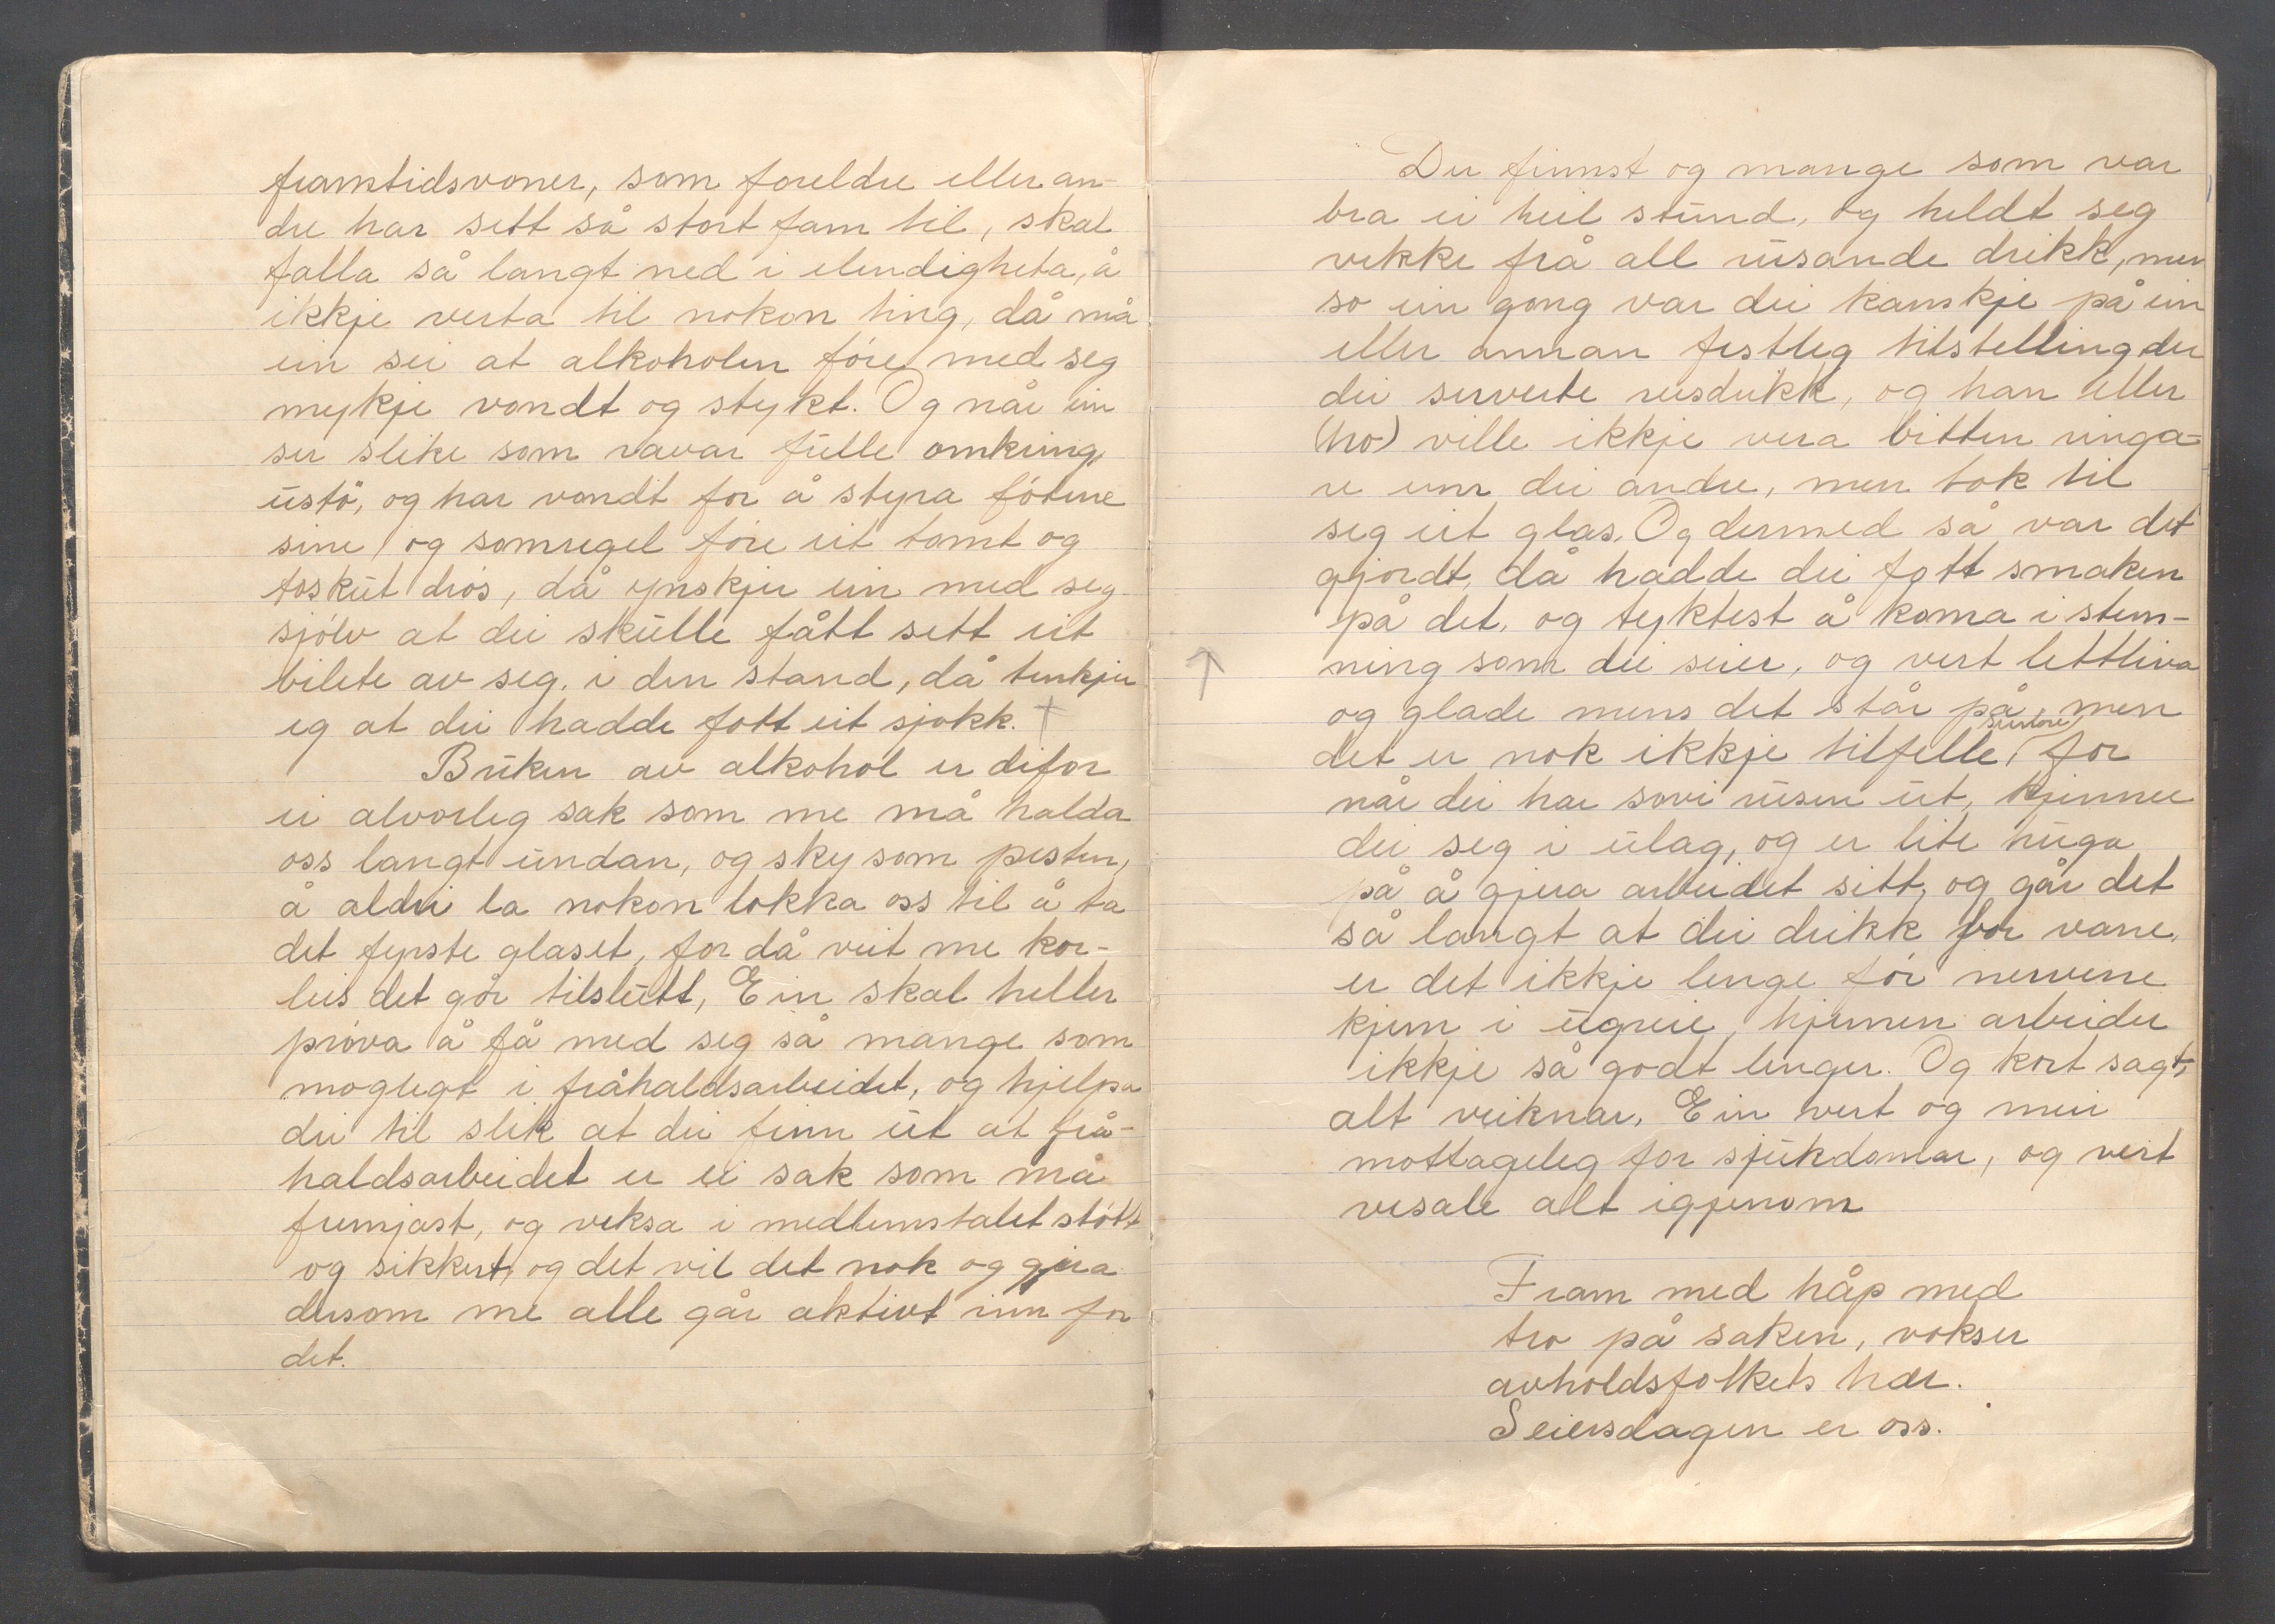 framtidsvoner, som foreldre eller an-
dre har sett så stort fam til, skal
falla så langt ned i elendigheta, å
ikkje verta til nokon ting, då må
ein sei at alkoholen fóre med seg
mykje vondt og stykt. Og når ein
ser slike som ravar fulle omkring
ustö, og har vondt for å styra fótene
sine, og somregel fóre eit tomt og
toskut drós, då ynskjer ein med seg
sjólv at dei skulle fått sett eit
bilete av seg. i den stand, då tenkjer
eg at dei hadde fott eit sjokk. +
Bruken av alkohol er difor
ei alvorleg sak som me må halda
oss langt undan, og sky som pesten,
å aldri la nokon lokka oss til å ta
det fyrste glaset, for då veit me kor-
leis det gór tilslutt, Ein skal heller
próva å få med seg så mange som
moglegt i fråhaldsarbeidet, og hjelpa
dei til slik at dei finn ut at frå-
haldsarbeidet er ei sak som må
fremjast, og veksa i medlemstalet stótt
og sikkert, og det vil det nok og gjera
dersom me alle går aktivt inn for
det.
Der finnst og mange som var
bra ei heil stund, og heldt seg
vekke frå all rusande drikk, men
so ein gong var dei kanskje på ein
eller annan festleg tilstelling der
dei serverte rusdrikk, og han eller
(ho) ville ikkje vera bitten ringa-
re enn dei andre, men tok til
seg eit glas. Og dermed så var det
gjordt, då hadde dei fott smaken
på det, og tyktest å koma i stem-
ning som dei seier, og vert lettliva
↑
og glade mens det står på, men
det er nok ikkje tilfelle, seinare for
når dei har sovi rusen ut, kjenner
dei seg i ulag, og er lite huga
på å gjera arbeidet sitt, og går det
så langt at dei drikk for vane,
er det ikkje lenge fór nervene
kjem i ugreie, hjernen arbeider
ikkje så godt lenger. Og kort sagt,
alt veiknar, Ein vert og meir
mottageleg for sjukdomar, og vert
vesale alt igjenom
Fram med håp med
tro på saken, vokser
avholdsfolkets hær.
Seiersdagen er oss.